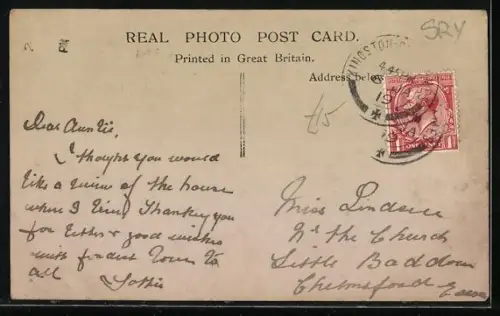 SRY
REAL PHOTO POST CARD.
Printed in Great Britain.
Address below
KINGSTON
4.45PM
19
1 1
£5
Dear Auntie,
I thought you would
like a view of the house
where I live. Thank you
for letter & good wishes
with fondest love to
all
Lottie
Miss
Nr the Church
Little Baddow
Chelmsford
Essex